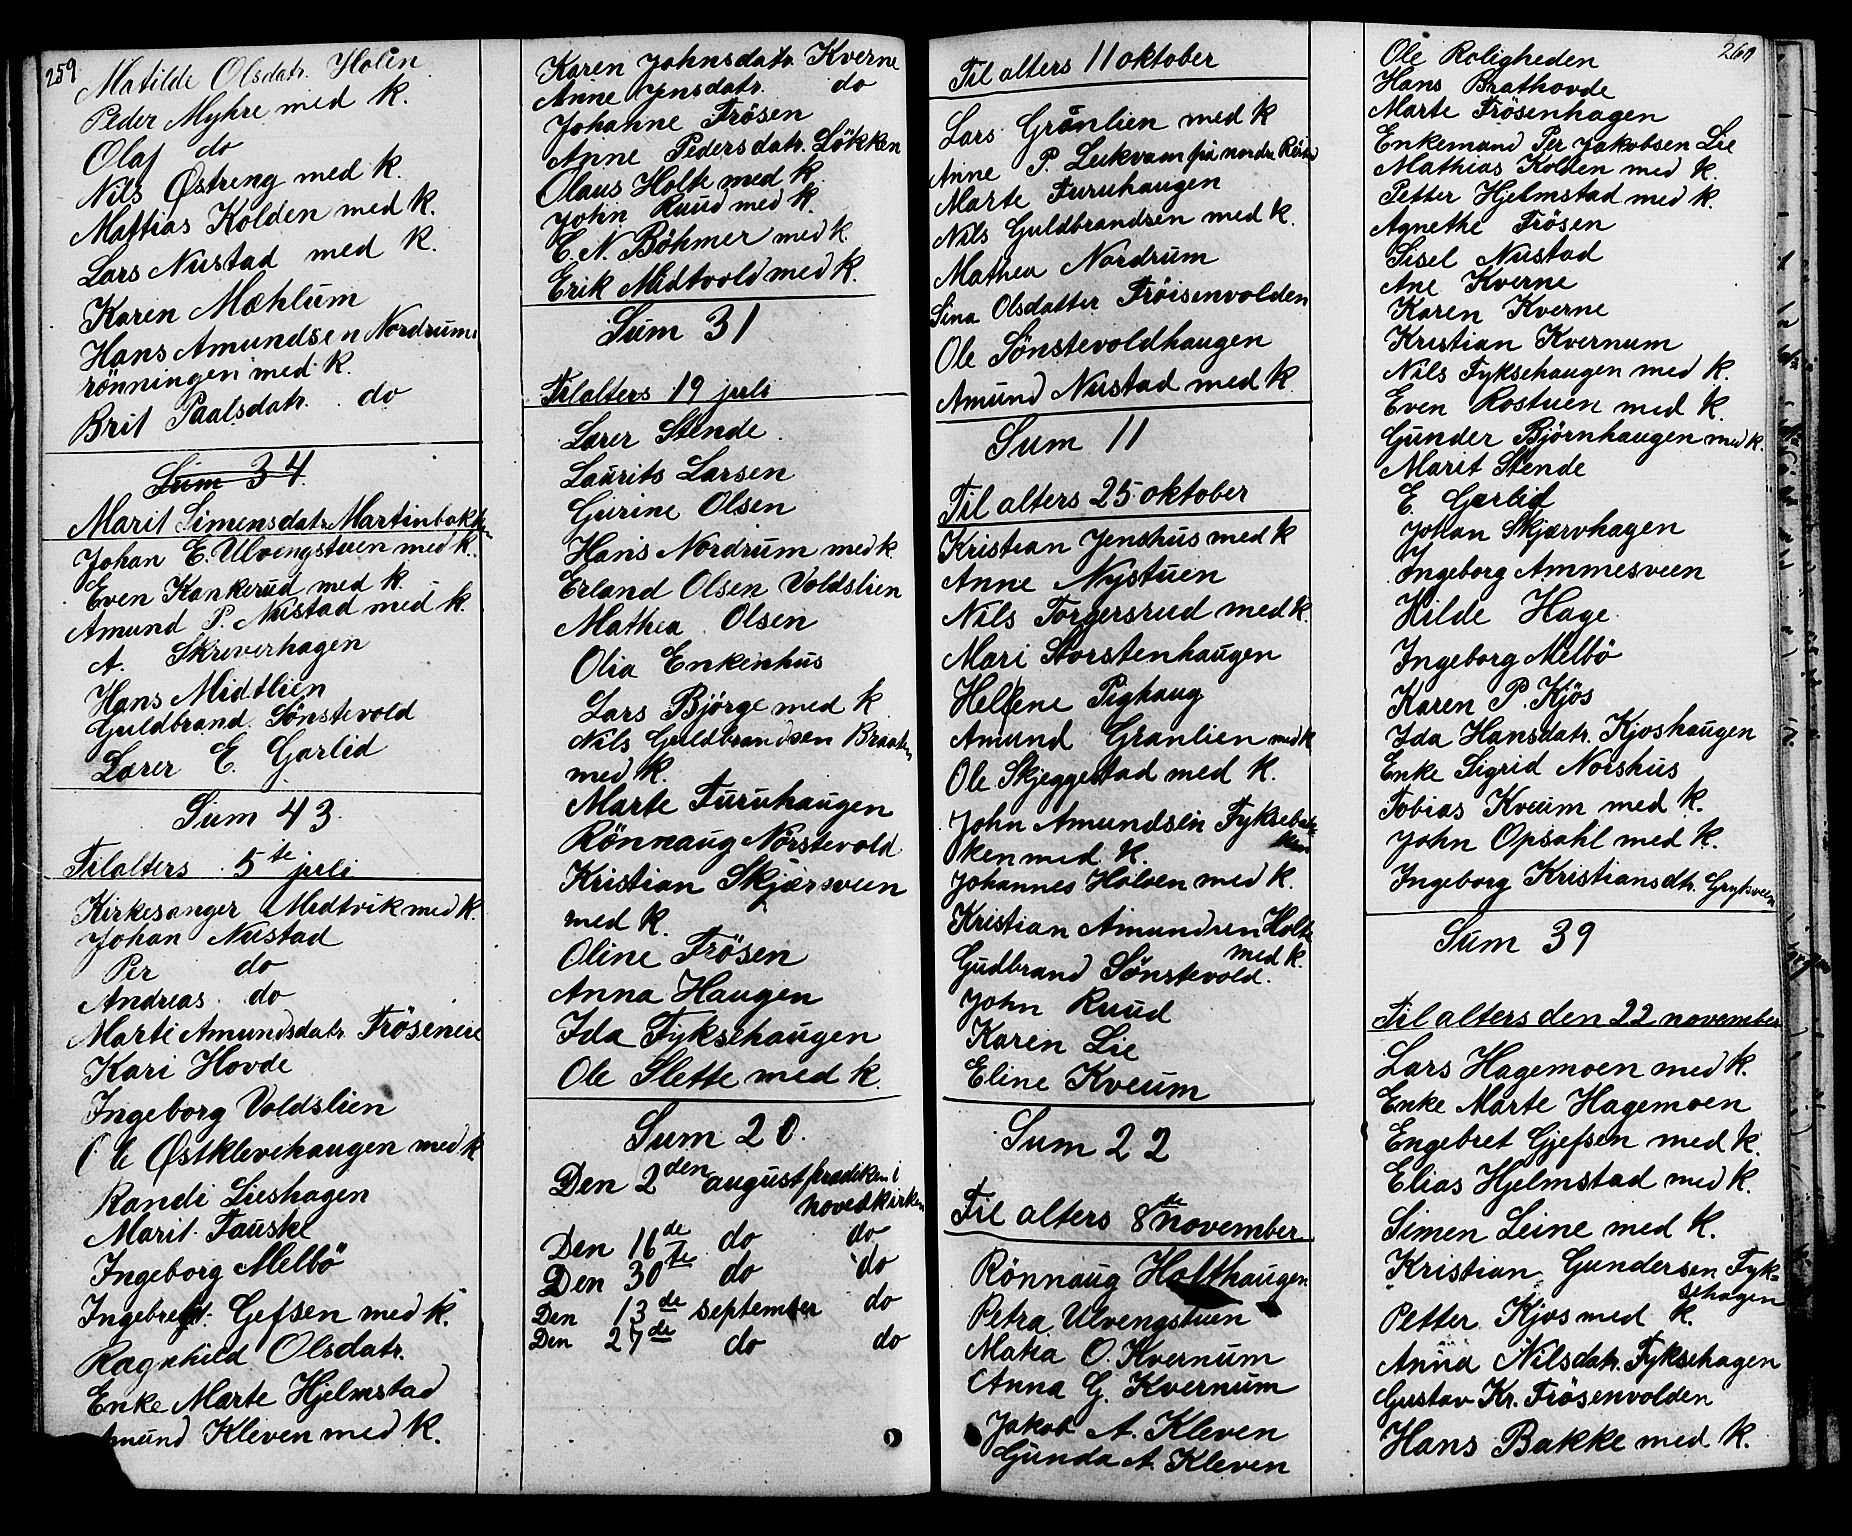 259
Matilde Olsdatr. Holen
Peder Myhre med k.
Olaf do
Nils Østreng med k.
Mattias Kolden med k.
Lars Nustad med k.
Karen Mæhlum
Hans Amundsen Nordrums
rönningen med k.
Brit Paalsdatr. do
Sum 34
Marit Simensdatr. Martinbakken
Johan E. Ulvengstuen med k.
Even Kankerud med k.
Amund P. Nustad med k.
A. Skriverhagen
Hans Midtlien
Guldbrand Sönstevold
Lærer E. Garlid
Sum 43.
Til alters 5te juli
Kirkesanger Midtvik med k.
Johan Nustad
Per do
Andreas do
Marte Amundsdatr. Fröseneie
Kari Hovde
Ingeborg Voldslien
Ole Østklevehaugen med k
Randi Lieshagen
Marit Fauske
Ingeborg Melbö
Ingebregt Gefsen med k.
Ragnhild Olsdatr.
Enke Marte Hjelmstad
Amund Kleven med k.
Karen Johnsdatr. Kverne
Anne Jensdatr. do
Johanne Frösen
Anne Pedersdatr. Lökken
Olaus Holte med k
John Ruud med k.
E. N. Böhmer med k.
Erik Midtvold med k.
Sum 31
Til alters 19 juli
Lærer Stende
Laurits Larsen
Gurine Olsen
Hans Nordrum med k
Erland Olsen Voldslien
Mathea Olsen
Olia Enkenhus
Lars Björge med k
Nils Guldbrandsen Braaten
med k.
Marte Furuhaugen
Rönnaug Nörstevold
Kristian Skjærsveen
med k.
Oline Frösen
Anna Haugen
Ida Fyksehaugen
Ole Slette med k.
Sum 20.
Den 2den august prædiken i
hovedkirken
Den 16de do do
Den 30te do do
Den 13de september do
Den 27de do do
Til alters 11 oktober
Lars Grönlien med k
Anne P. Leekvam på nordre
Marte Furuhaugen
Nils Guldbrandsen med k.
Mathea Nordrum
Sina Olsdatter Fröisenvolden
Ole Sönstevoldhaugen
Amund Nustad med k.
Sum 11
Til alters 25 oktober
Kristian Jenshus med k
Anne Nystuen
Nils Torgersrud med k.
Mari Storstenhaugen
Hellene Pighaug
Amund Granlien med k
Ole Skjeggestad med k.
John Amundsen Fyksebak-
ken med k.
Johannes Holoen med k.
Kristian Amundsen Holte
med k.
Gudbrand Sönstevold.
John Ruud
Karen Lie
Eline Kveum
Sum 22
Til alters 8de november
Rönnaug Holthaugen
Petra Ulvengstuen
Matia O. Kvernum
Anna G. Kvernum
Jakob A. Kleven
Gunda A. Kleven
260
Ole Roligheden
Hans Brathovde
Marte Frösenhagen
Enkemand Per Jakobsen Lie
Mathias Kolden med k.
Petter Hjelmstad med k.
Agnethe Frösen
Sisel Nustad
Ane Kverne
Karen Kverne
Kristian Kvernum
Nils Fyksehaugen med k.
Even Rostuen med k.
Gunder Björnhaugen med k.
Marit Stende
E. Garlid
Johan Skjærvhagen
Ingeborg Ammesveen
Hilde Hage
Ingeborg Melbö
Karen P. Kjös
Ida Hansdatr. Kjoshaugen
Enke Sigrid Norshus
Tobias Kveum med k.
John Opsahl med k.
Ingeborg Kristiansdtr. Grytsveen
Sum 39
Til alters den 22 november
Lars Hagemoen med k.
Enke Marte Hagemoen
Engebret Gjefsen med k.
Elias Hjelmstad med k.
Simen Leine med k.
Kristian Gundersen Fyk-
sehagen
Petter Kjos med k.
Anna Nilsdatr. Fyksehagen
Gustav Kr. Frösenvolden
Hans Bakke med k.